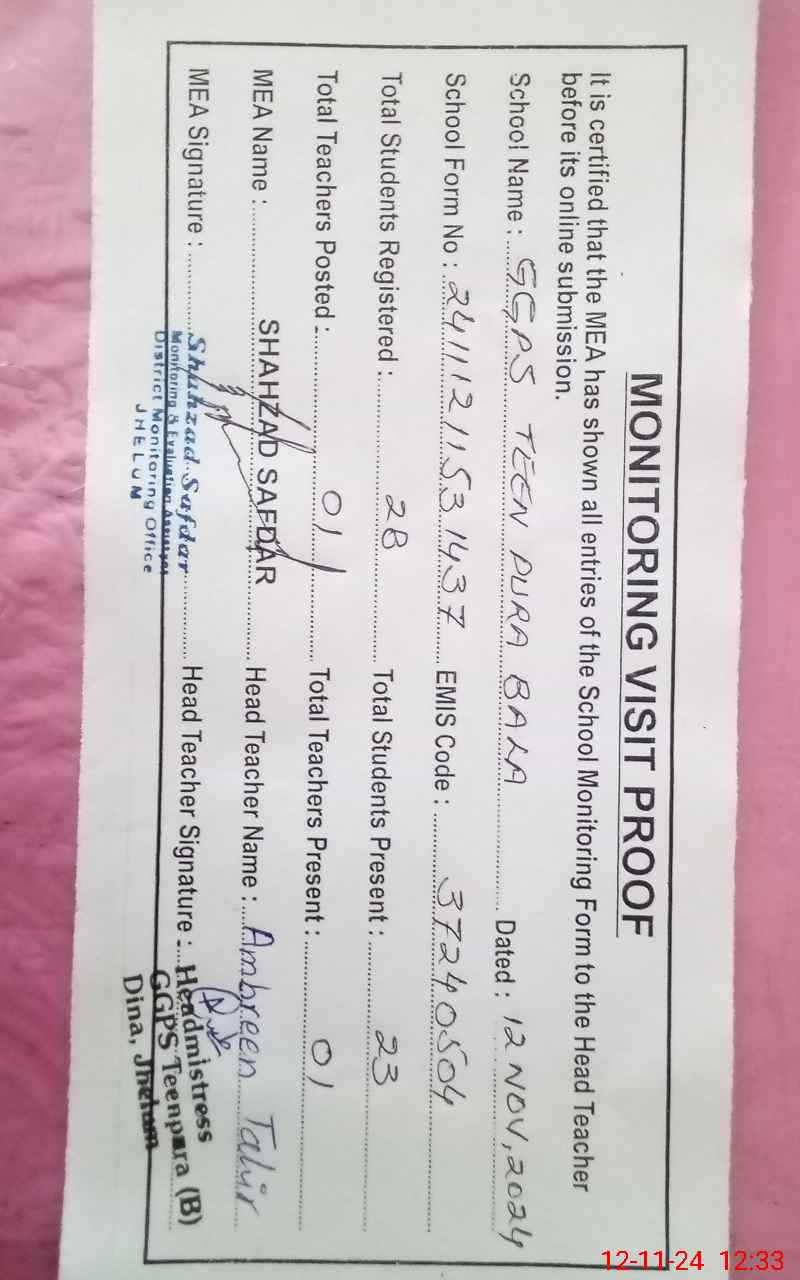 MONITORING VISIT PROOF
It is certified that the MEA has shown all entries of the School Monitoring Form to the Head Teacher
before its online submission.
School Name : GGPS TEEN PURA BALA Dated : 12 NOV, 2024
School Form No : 24111211531437 EMIS Code : 37240504
Total Students Registered : 28 Total Students Present : 23
Total Teachers Posted : 01 Total Teachers Present : 01
MEA Name : SHAHZAD SAFDAR Head Teacher Name : Ambreen Tahir
MEA Signature : Shahzad Safdar Head Teacher Signature : Headmistress
Monitoring & Evaluation Assistant GGPS Teenpura (B)
District Monitoring Office Dina, Jhelum
JHELUM
12-11-24 12:33